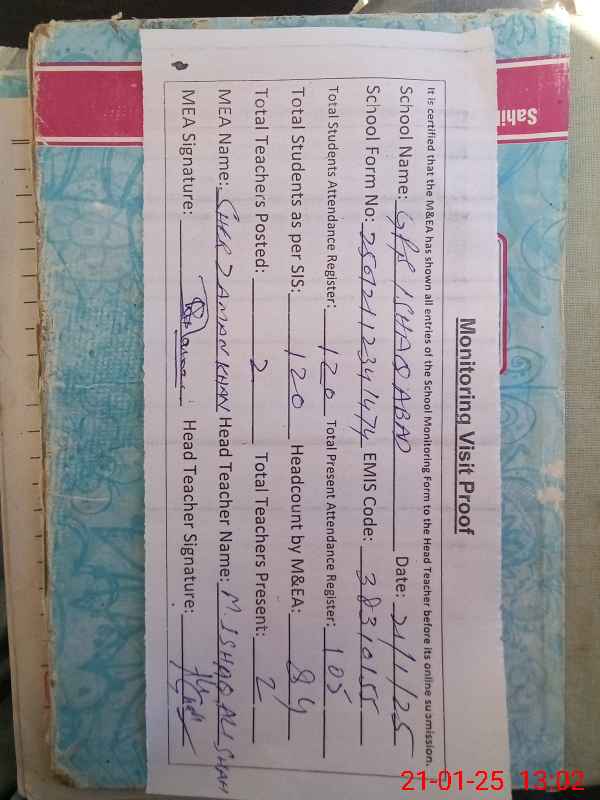 Monitoring Visit Proof
It is certified that the M&EA has shown all entries of the School Monitoring Form to the Head Teacher before its online submission.
School Name: GPS ISHAQ ABAD Date: 21/1/25
School Form No: 25012112341474 EMIS Code: 38310155
Total Students Attendance Register: 120 Total Present Attendance Register: 105
Total Students as per SIS: 120 Headcount by M&EA: 84
Total Teachers Posted: 2 Total Teachers Present: 2
MEA Name: SHER ZAMAN KHAN Head Teacher Name: M. ISHAQ ALI SHAH
MEA Signature: Head Teacher Signature:
Sahi
21-01-25 13:02